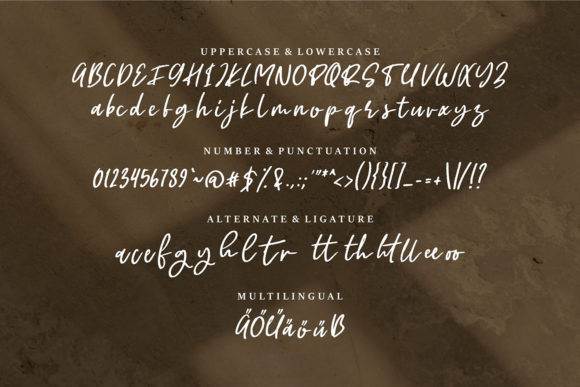 UPPERCASE & LOWERCASE
ABCDEFGHIJKLMNOPQRSTUVWXYZ
abcdefghijklmnopqrstuvwxyz
NUMBER & PUNCTUATION
0123456789`~@#$%&.,:;'"*^<>(){}[]_-=+\|/!?
ALTERNATE & LIGATURE
acefgyhltr tt th ht ll ee oo
MULTILINGUAL
ÄÖÜäöüß